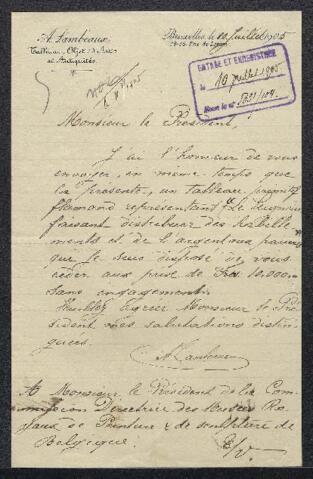 A. Lambeaux
Tableaux, Objets d'Art
et Antiquités
Bruxelles, le 10 juillet 1905
ENTRÉE ET ENREGISTRÉE
le 10 juillet 1905
Sous le n° 5631/104.
Monsieur le Président,
J'ai l'honneur de vous
envoyer, en même temps que
la présente, un tableau primitif
flamand représentant "Le Seigneur
faisant distribuer des habille-
ments et de l'argent aux pauvres
que je suis disposé de vous
céder aux prise de Frs 10.000
sans engagement.
Veuillez Agréer Monsieur le Pré-
sident mes salutations distin-
guées.
A Lambeaux
A Monsieur le Président de la Com-
mission Directrice des Musées Ro-
yaux de Peinture & de sculpture de
Belgique.
E/V.